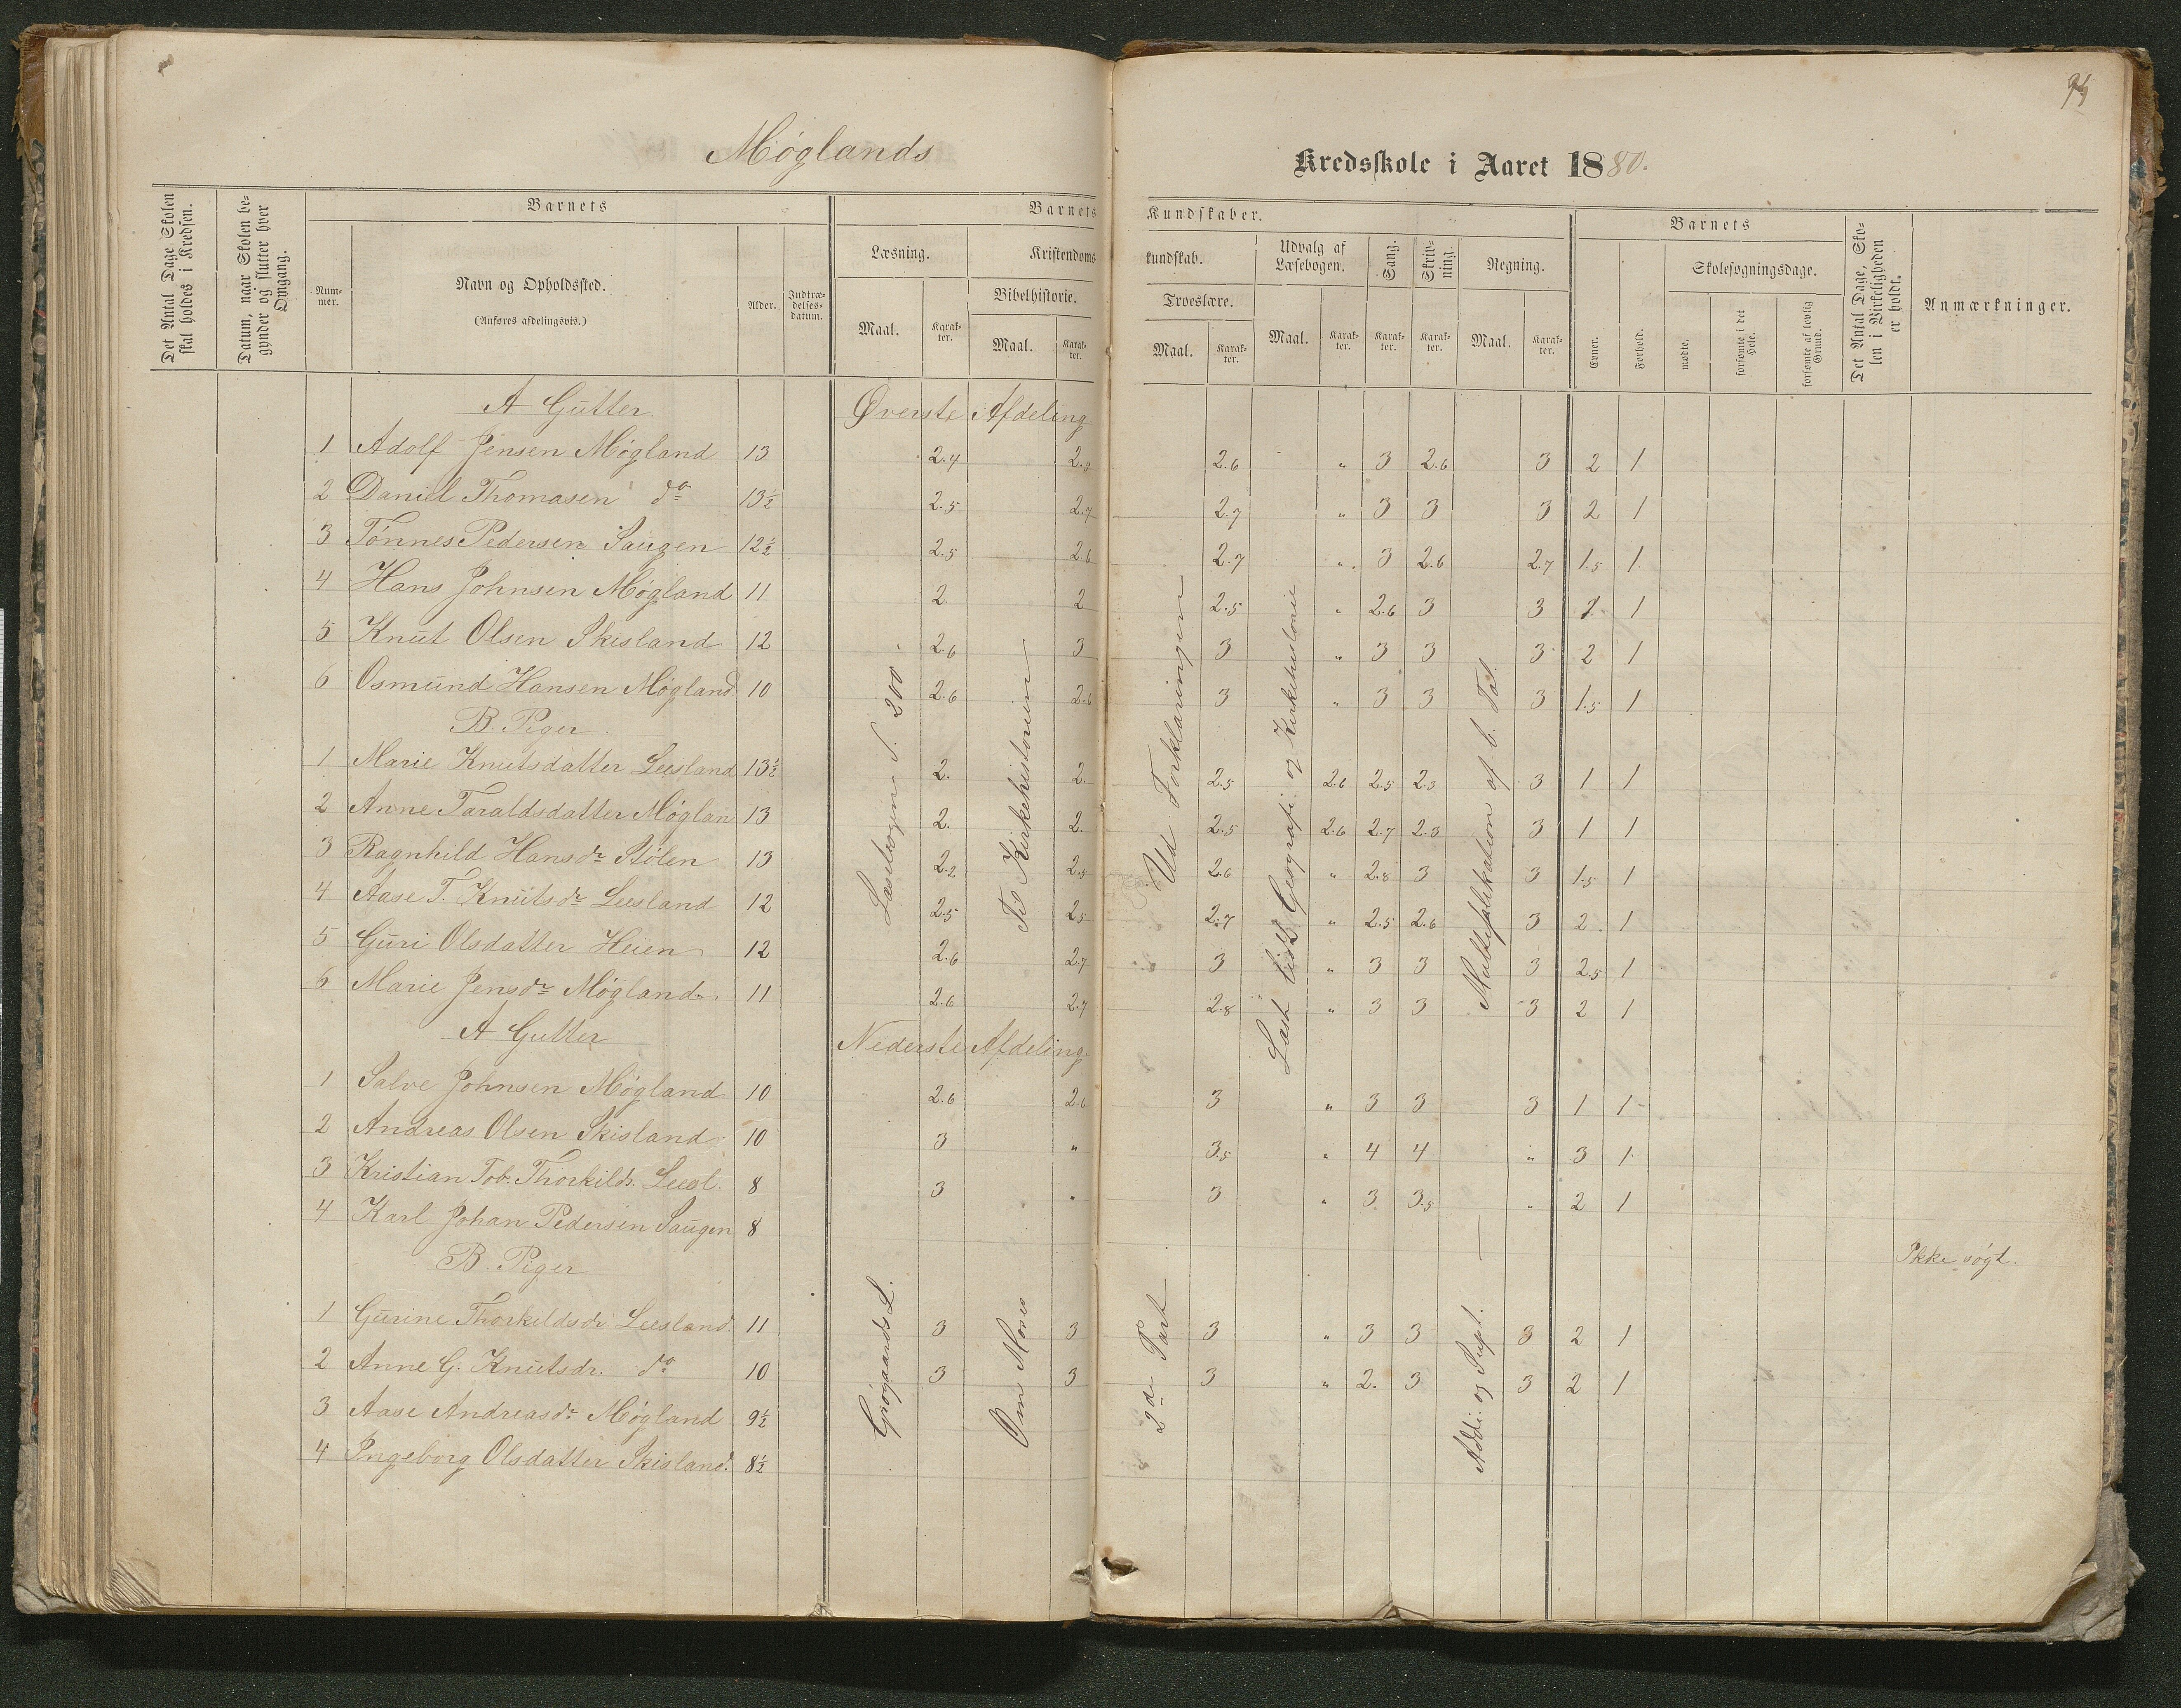 Møglands Kredsskole i Aaret 1880.
Det Antal Dage Skolen skal holdes i Kredsen.
Datum, naar Skolen begynder og slutter hver Omgang.
Barnets
Nummer.
Navn og Opholdssted.
(Anføres afdelingsvis.)
Alder.
Indtrædelses-datum.
Barnets Kundskaber.
Læsning.
Maal.
Karakter.
Kristendomskundskab.
Bibelhistorie.
Maal.
Karakter.
Troeslære.
Maal.
Karakter.
Udvalg af Læsebogen.
Maal.
Karakter.
Sang.
Karakter.
Skrivning.
Karakter.
Regning.
Maal.
Karakter.
Barnets
Evner.
Forhold.
Skolesøgningsdage.
mødte.
forsømte i det Hele.
forsømte af lovlig Grund.
Det Antal Dage, Skolen i Virkeligheden er holdt.
Anmærkninger.
A Gutter. Øverste Afdeling.
1 Adolf Jensen Møgland 13 2.4 2.6 " 3 2.6 3 2 1
2 Daniel Thomasen do 13½ 2.5 2.7 2.7 " 3 3 3 2 1
3 Tønnes Pedersen Saugen 12½ 2.5 2.6 2.7 " 3 2.6 2.7 1.5 1
4 Hans Johnsen Møgland 11 2. 2 2.5 " 2.6 3 3 1
5 Knut Olsen Skisland 12 2.6 3 3 " 3 3 3 2 1
6 Osmund Hansen Møgland 10 2.6 2.6 3 " 3 3 3 1.5 1
B. Piger.
1 Marie Knutsdatter Leesland 13½ 2. 2. 2.5 2.6 2.5 2.3 3 1 1
2 Anne Taraldsdatter Møglan 13 2. 2. 2.5 2.6 2.7 2.3 3 1 1
3 Ragnhild Hansdr Stølen 13 2.2 2.5 2.6 " 2.8 3 3 1.5 1
4 Aase T. Knutsdr Leesland 12 2.5 2.5 2.7 " 2.5 2.6 3 2 1
5 Guri Olsdatter Heien 12 2.6 2.7 3 " 3 3 3 2.5 1
6 Marie Jensdr Møgland 11 2.6 2.7 2.8 " 3 3 3 2 1
Læsebogen S. 200.
Til Kirkehistorien
Ud Forklaringen
Læst lidt Geografi og Kirkehistorie
Multiplikation af b. Tal
A Gutter Nederste Afdeling.
1 Salve Johnsen Møgland 10 2.6 2.6 3 " 3 3 3 1 1
2 Andreas Olsen Skisland 10 3 " 3.5 " 4 4 " 3 1
3 Kristian Tob. Thorkilds. Leesl. 8 3 " 3 " 3 3.5 " 2 1
4 Karl Johan Pedersen Saugen 8 Ikke søgt.
B. Piger
1 Gurine Thorkildsdr. Leesland. 11 3 3 3 " 3 3 3 2 1
2 Anne G. Knutsdr. do 10 3 3 3 " 2. 3 3 2 1
3 Aase Andreasdr Møgland 9½
4 Ingeborg Olsdatter Skisland. 8½
Grøgaards L.
Om Moses
2den Part
Addi. og Supt.